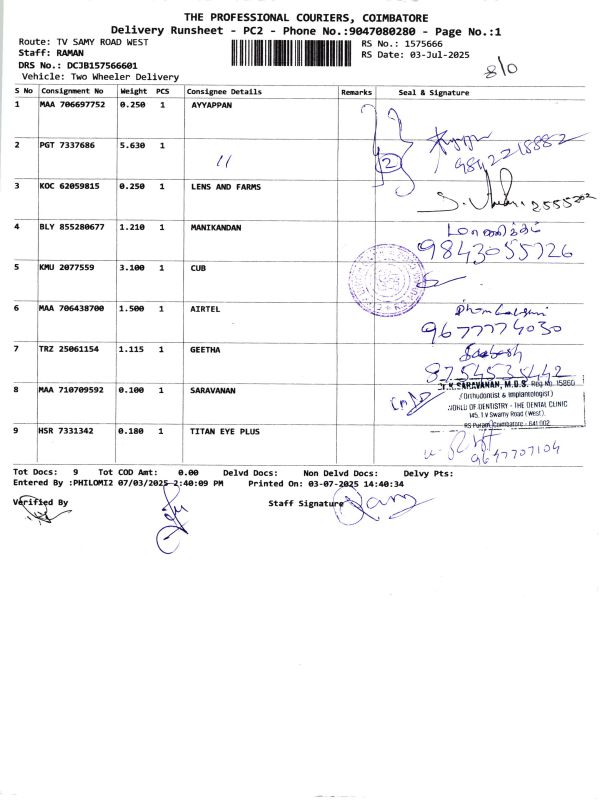 THE PROFESSIONAL COURIERS, COIMBATORE
Delivery Runsheet - PC2 - Phone No.:9047080280 - Page No.:1
Route: TV SAMY ROAD WEST RS No.: 1575666
Staff: RAMAN RS Date: 03-Jul-2025
DRS No.: DCJB157566601
Vehicle: Two Wheeler Delivery
8/0
S No Consignment No Weight PCS Consignee Details Remarks Seal & Signature
1 MAA 706697752 0.250 1 AYYAPPAN
2 PGT 7337686 5.630 1 11 2 9842218882
3 KOC 62059815 0.250 1 LENS AND FARMS
4 BLY 855280677 1.210 1 MANIKANDAN
9843055726
5 KMU 2077559 3.100 1 CUB
6 MAA 706438700 1.500 1 AIRTEL
9677774030
7 TRZ 25061154 1.115 1 GEETHA
8754535442
8 MAA 710709592 0.100 1 SARAVANAN
Dr.K.SARAVANAN, M.D.S. Reg No. 15860
(Orthodontist & Implantologist)
WORLD OF DENTISTRY - THE DENTAL CLINIC
145, T.V Swamy Road (West),
RS Puram, Coimbatore - 641 002
9 HSR 7331342 0.180 1 TITAN EYE PLUS
9647707104
Tot Docs: 9 Tot COD Amt: 0.00 Delvd Docs: Non Delvd Docs: Delvy Pts:
Entered By :PHILOMI2 07/03/2025 2:40:09 PM Printed On: 03-07-2025 14:40:34
Verified By Staff Signature